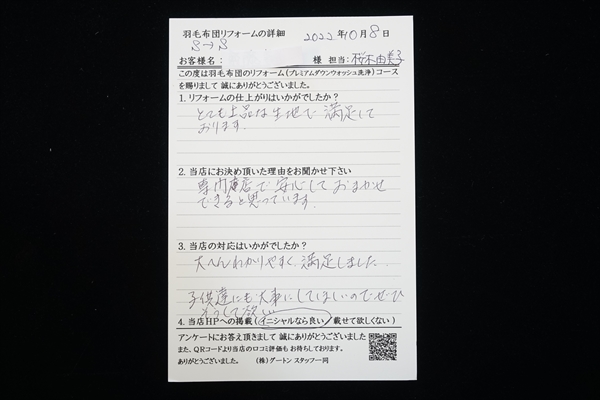 羽毛布団リフォームの詳細 2022年10月8日
S→S
お客様名： 様 担当：桜木由美子
この度は羽毛布団のリフォーム(プレミアムダウンウォッシュ洗浄)コース
を賜りまして 誠にありがとうございました。
1. リフォームの仕上がりはいかがでしたか？
とても上品な生地で満足して
おります。
2. 当店にお決め頂いた理由をお聞かせ下さい
専門店で安心しておまかせ
できると思っています。
3. 当店の対応はいかがでしたか？
大へんわかりやすく、満足しました。
子供達にも大事にしてほしいのでぜひ
そうして欲しい
4. 当店HPへの掲載(イニシャルなら良い/載せて欲しくない)
アンケートにお答え頂きまして 誠にありがとうございました
また、QRコードより当店の口コミ評価も お待ちしております。
ありがとうございました。 (株)ダートン スタッフ一同